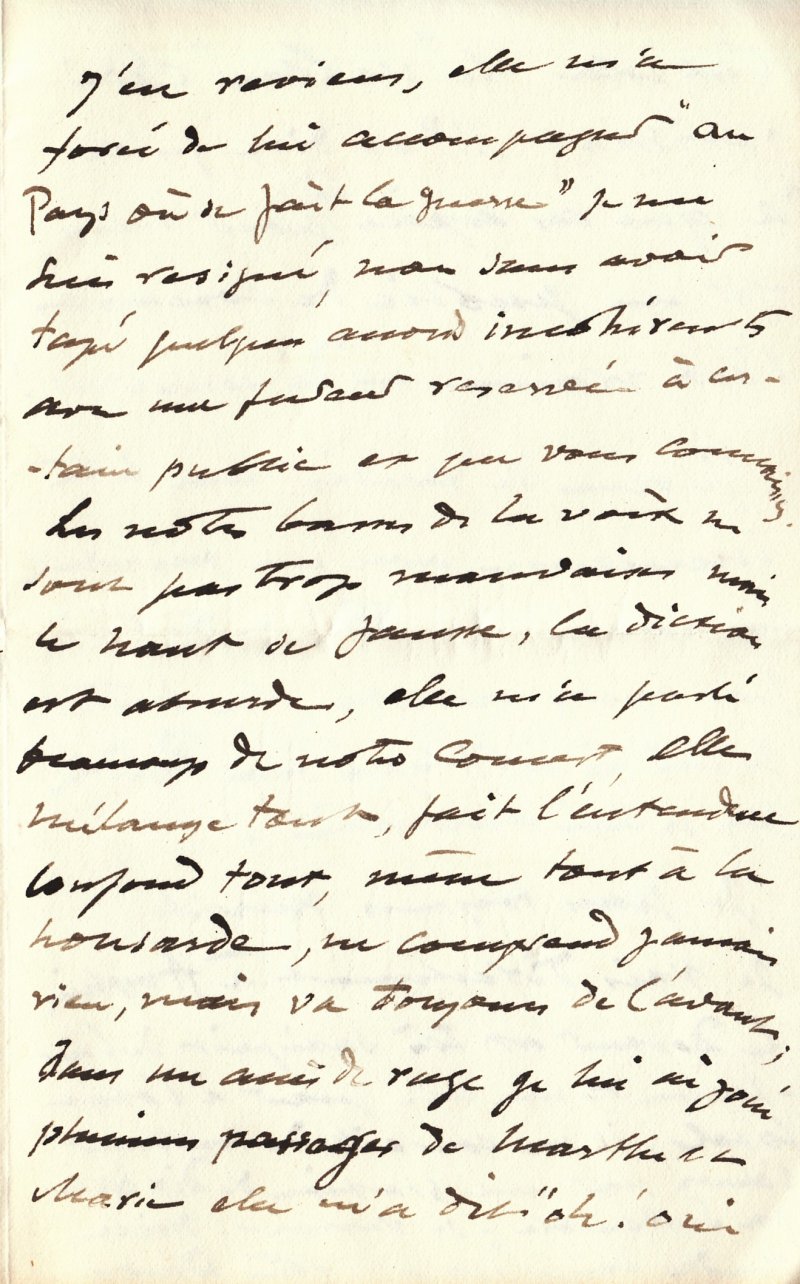 J'en reviens, elle m'a
forcé de lui accompagner "Au
Pays où se fait la guerre" je me
suis resigné, non sans avoir
tapé quelques accords incohérents
avec une fureur reservée à cer-
-tain public et que vous connaissez.
Les notes basses de la voix ne
sont pas trop mauvaises mais
le haut se fausse, la diction
est absurde, elle m'a parlé
beaucoup de notre Concert, elle
mélange tout, fait l'entendue
confond tout, mène tout à la
housarde, ne comprend jamais
rien, mais va toujours de l'avant;
Dans un accès de rage je lui ai joué
plusieurs passages de Marthe et
Marie elle m'a dit "oh! oui